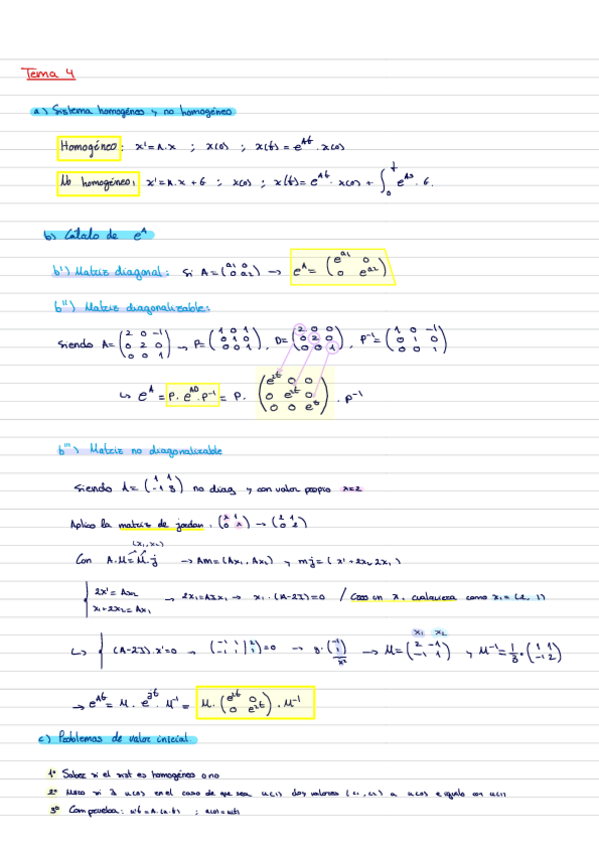 Tema 4
a) Sistema homogéneo y no homogéneo
Homogéneo: x'=A.x ; x(0) ; x(t)=e^At . x(0)
No homogéneo: x'=A.x+G ; x(0) ; x(t)=e^At . x(0) + ∫₀^t e^As . G.
b) Cálculo de e^A
b') Matriz diagonal: Si A=(a1 0 / 0 a2) → e^A=(e^a1 0 / 0 e^a2)
b'') Matriz diagonalizable:
Siendo A=(2 0 -1 / 0 2 0 / 0 0 1) → P=(1 0 1 / 0 1 0 / 0 0 1), D=(2 0 0 / 0 2 0 / 0 0 1), P^-1=(1 0 -1 / 0 1 0 / 0 0 1)
↳ e^A = P. e^AD . P^-1 = P. (e^2t 0 0 / 0 e^2t 0 / 0 0 e^t) . P^-1
b''') Matriz no diagonalizable
Siendo A=(1 1 / -1 3) no diag y con valor propio λ=2
Aplico la matriz de jordan. (λ 1 / 0 λ) → (2 1 / 0 2)
(x1, x2)
Con A.M=M.j → Am=(Ax1, Ax2) y mj=(
= Ax2
x1+2x2=Ax1
→ x1.(A-2I)=0 / Cojo un x1 cualquiera como x1=(2, 1)
↳ (A-2I).x'=0 → =0 → → M=(2 -1 / -1 1) y M^-1=1/3.(1 1 / -1 2)
x1 x2
→ e^At = M. e^jt . M^-1 = M.(e^2t 0 / 0 e^2t) . M^-1
c) Problemas de valor inicial.
1º Saber si el sist es homogéneo o no
2º Miro si u(0) en el caso de que sea u(1) doy valores (c1, c2) a u(0) e igualo con u(1)
3º Comprueba: